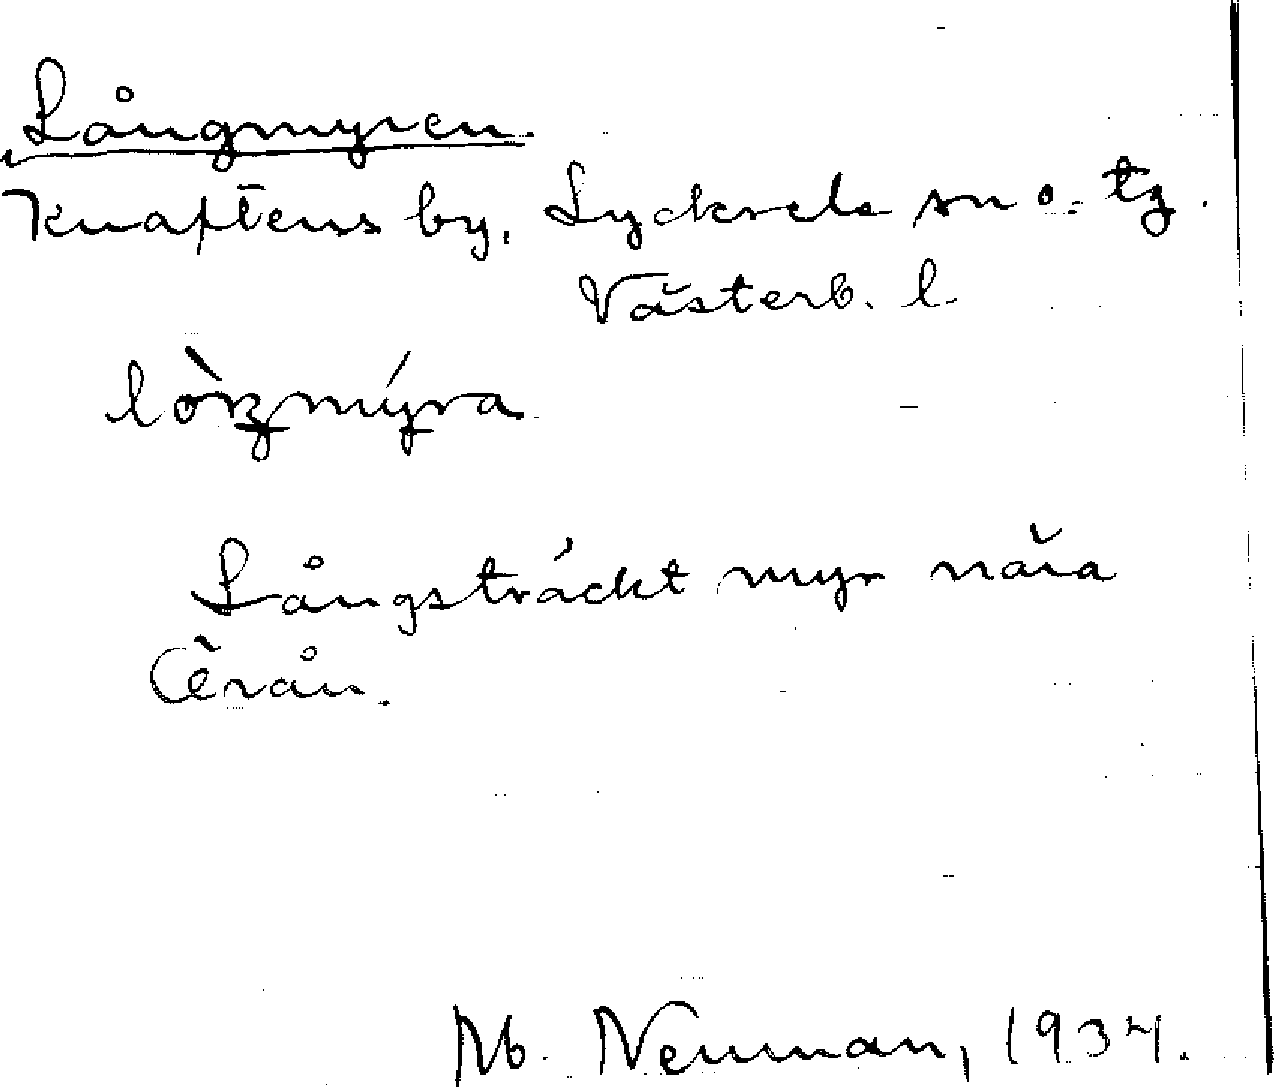 Långmyren.
Knaftens by, Lycksele sn o. tg.
Västerb. l.
Långsträckt myr nära
Örån.
Neuman, 1934.